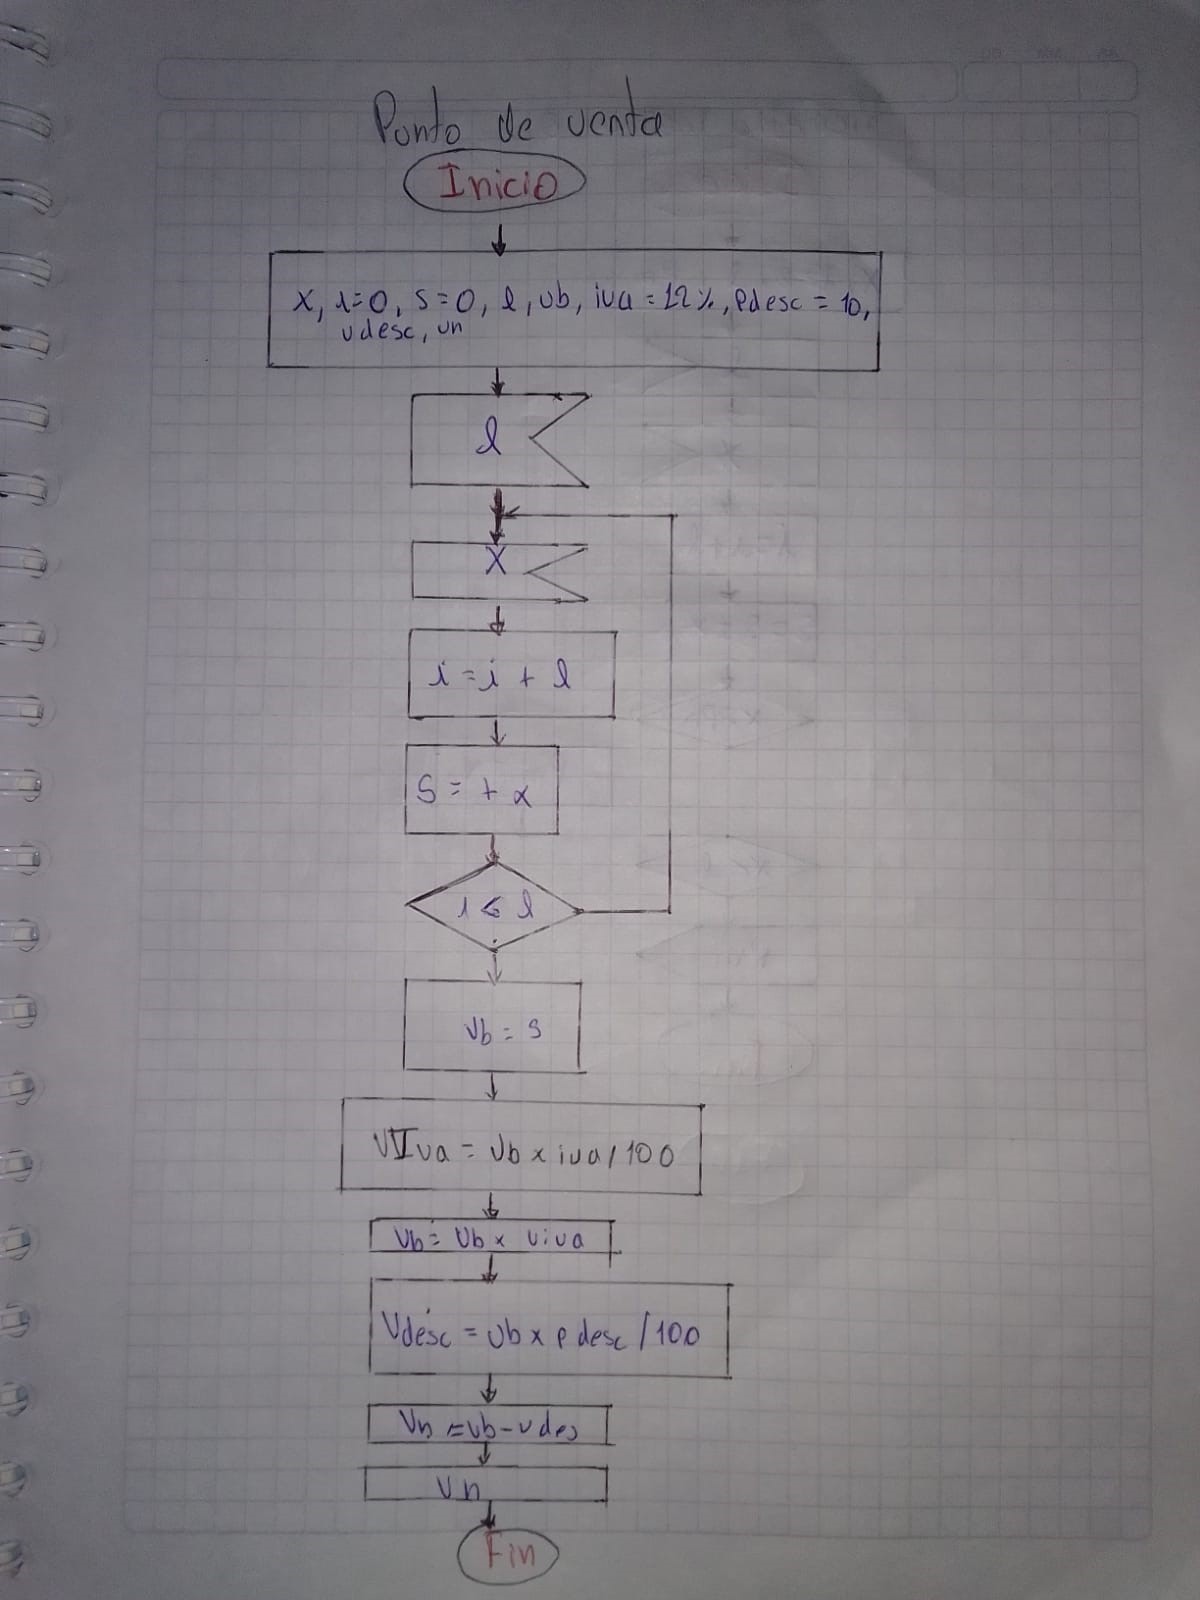 Punto de venta
Inicio
x, i=0, s=0, l, vb, iva=12%, Pdesc = 10,
vdesc, vn
l
X
i = i + l
S = + x
i ≤ l
Vb = s
VIva = Vb x iva / 100
Vb = Vb x viva
Vdesc = Vb x P desc / 100
Vn = vb - v des
Vn
Fin